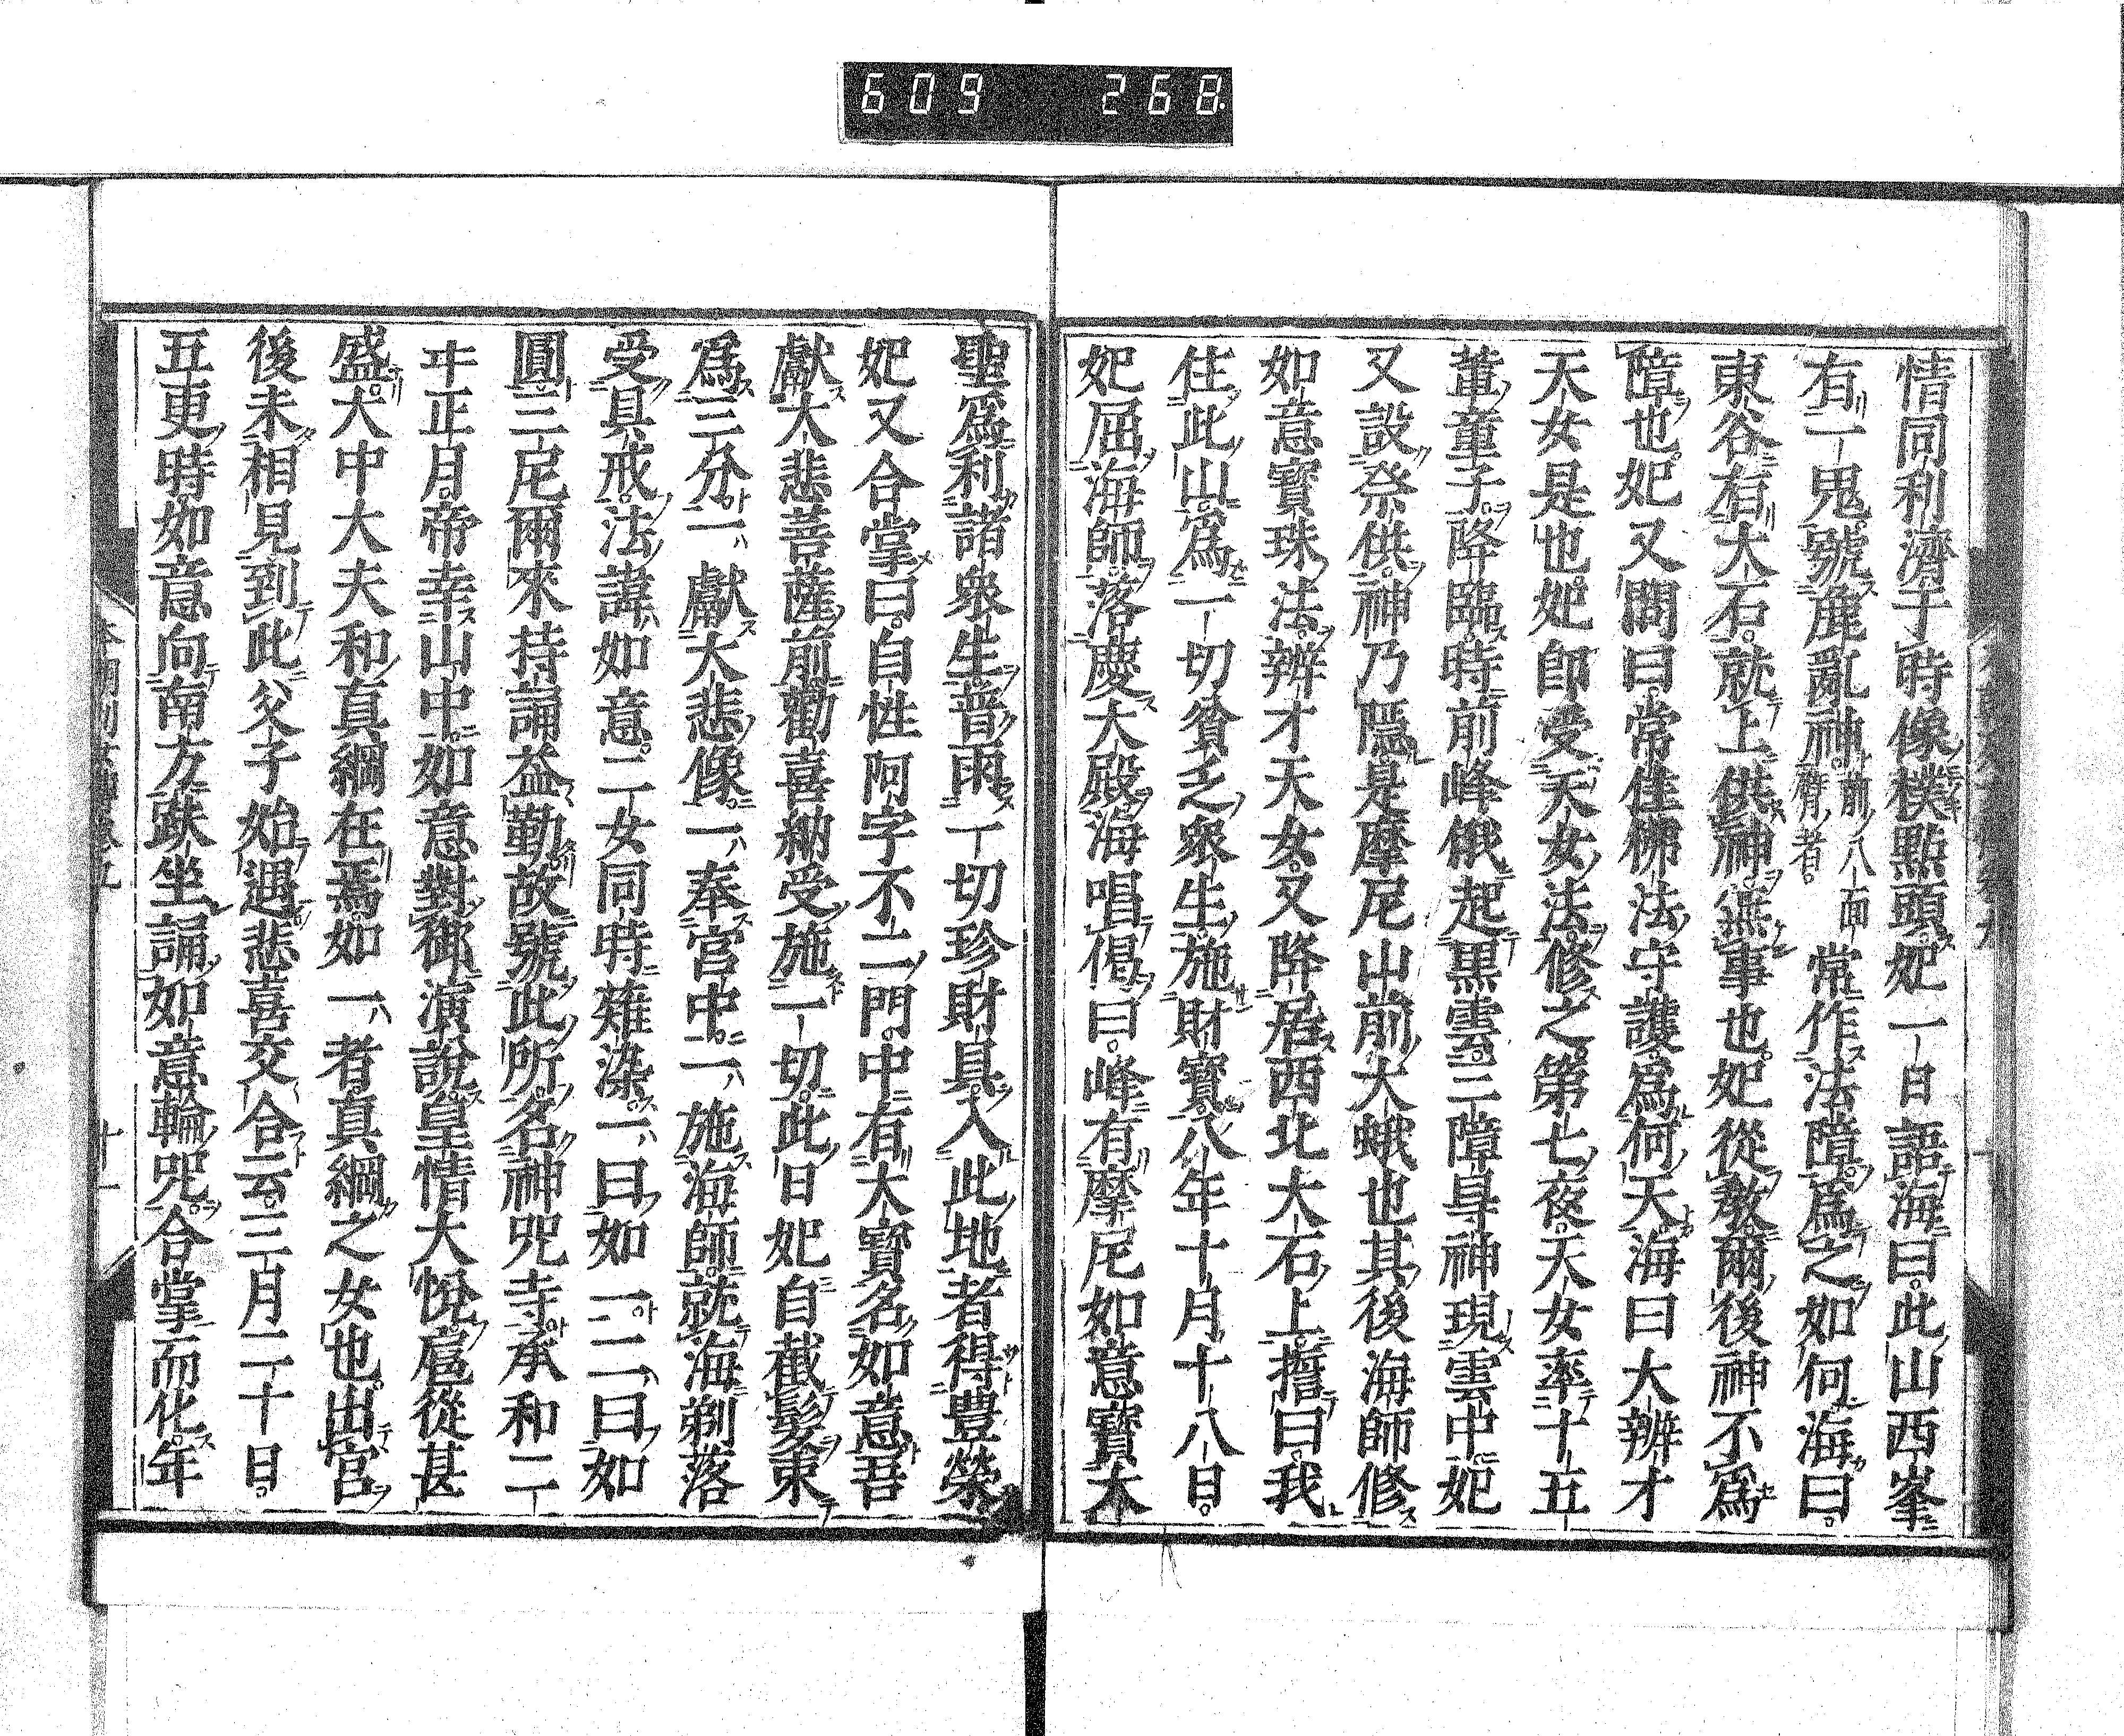 609 268
情同利濟于時像樸點頭妃一日語海曰此山西峯
有一鬼號麁亂神前八面臂者常作法障爲之如何海曰
東谷有大石就上供神無事也妃從教爾後神不爲
障也妃又問曰常住佛法守護爲何天海曰大辨才
天女是也妃卽受天女法修之第七夜天女率十五
童子降臨時前峰俄起黑雲三障身神現雲中妃
又設祭供神乃隱是摩尼山前大峨也其後海師修
如意寶珠法辨才天女又降居西北大石上擔曰我
住此山爲一切貧乏衆生施財寶八年十月十八日
妃屈海師落慶大殿海唱偈曰峰有摩尼如意寶大
聖爲利諸衆生普雨一切珍財具入此地者得豊榮
妃又合掌曰自性阿字不二門中有大寶名如意吾
獻大悲菩薩前勸喜納受施一切此日妃自截髮束
爲三分一獻大悲像一奉官中一施海師就海剃落
受具戒法諱如意二女同時薙染一曰如一二曰如
圓三尼爾來持誦益勤故號此所名神咒寺承和二
年正月帝幸山中如意對御演說皇情大悅扈從甚
盛大中大夫和真綱在焉如一者真綱之女也出宮
後未相見到此父子始遇悲喜交合云三月二十日
五更時如意向南方趺坐誦如意輪咒合掌而化年